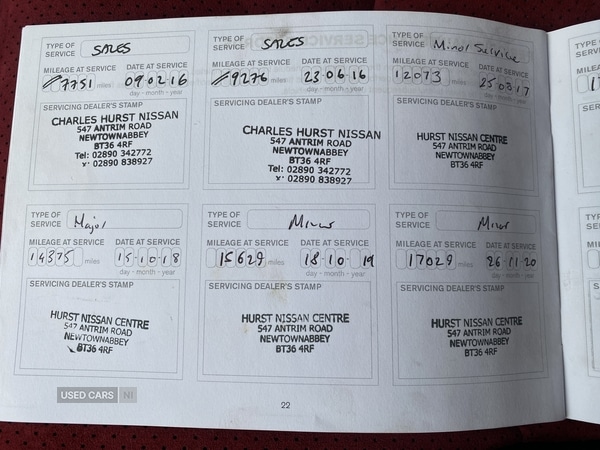 TYPE OF SERVICE SALES
MILEAGE AT SERVICE DATE AT SERVICE
7751 miles 09·02·16
day - month - year
SERVICING DEALER'S STAMP
CHARLES HURST NISSAN
547 ANTRIM ROAD
NEWTOWNABBEY
BT36 4RF
Tel: 02890 342772
x: 02890 838927
TYPE OF SERVICE SALES
MILEAGE AT SERVICE DATE AT SERVICE
9276 miles 23·06·16
day - month - year
SERVICING DEALER'S STAMP
CHARLES HURST NISSAN
547 ANTRIM ROAD
NEWTOWNABBEY
BT36 4RF
Tel: 02890 342772
x: 02890 838927
TYPE OF SERVICE Minor Service
MILEAGE AT SERVICE DATE AT SERVICE
12073 miles
day - month - year
SERVICING DEALER'S STAMP
HURST NISSAN CENTRE
547 ANTRIM ROAD
NEWTOWNABBEY
BT36 4RF
TYPE OF SERVICE Major
MILEAGE AT SERVICE DATE AT SERVICE
14375 miles 15·10·18
day - month - year
SERVICING DEALER'S STAMP
HURST NISSAN CENTRE
547 ANTRIM ROAD
NEWTOWNABBEY
BT36 4RF
TYPE OF SERVICE Minor
MILEAGE AT SERVICE DATE AT SERVICE
15629 miles 18·10·19
day - month - year
SERVICING DEALER'S STAMP
HURST NISSAN CENTRE
547 ANTRIM ROAD
NEWTOWNABBEY
BT36 4RF
TYPE OF SERVICE Minor
MILEAGE AT SERVICE DATE AT SERVICE
17029 miles 26·11·20
day - month - year
SERVICING DEALER'S STAMP
HURST NISSAN CENTRE
547 ANTRIM ROAD
NEWTOWNABBEY
BT36 4RF
USED CARS NI
22